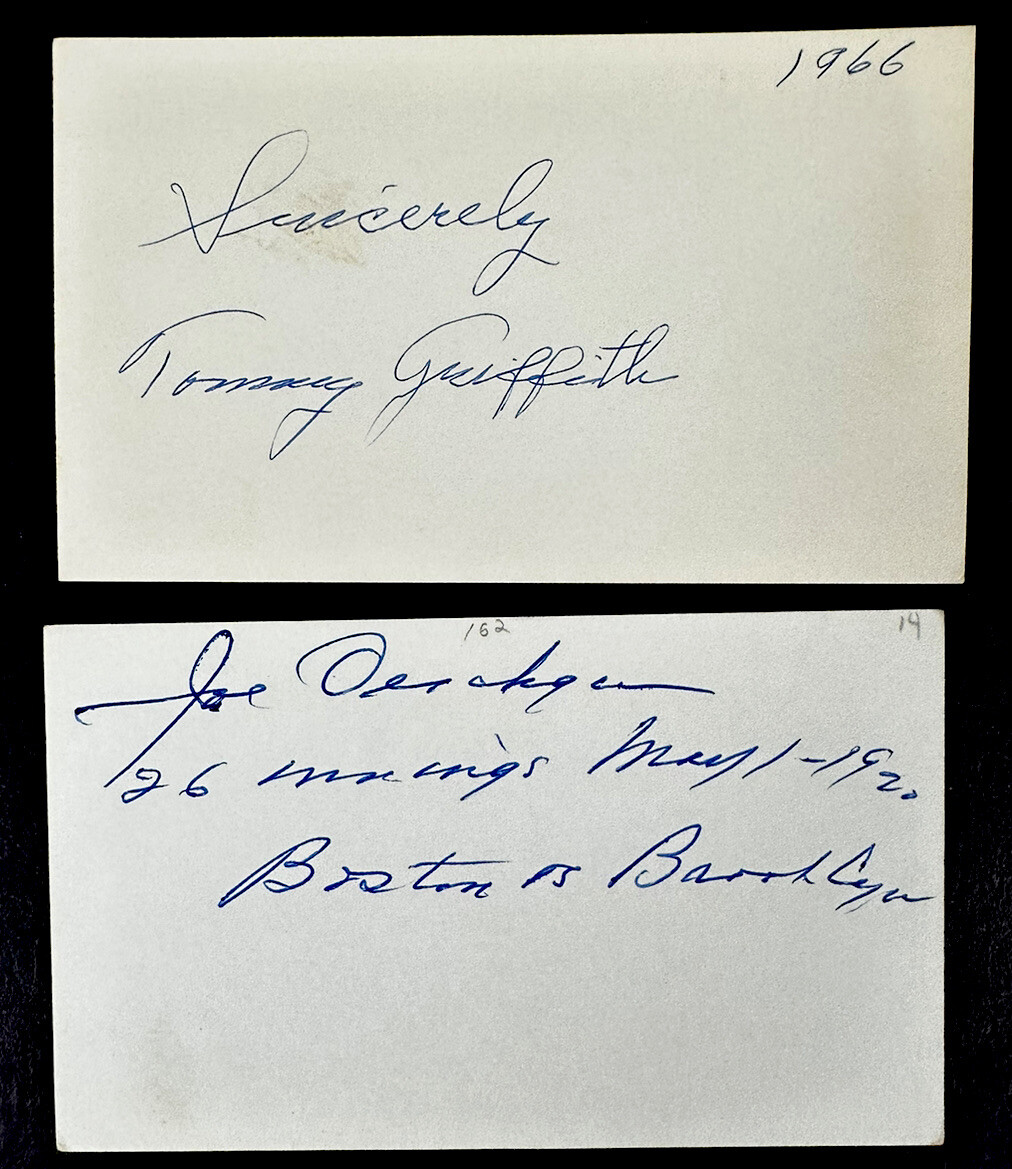 1966
Sincerely
Tommy Griffith
162 14
Joe Oeschger
26 innings May 1-1920
Boston vs Brooklyn